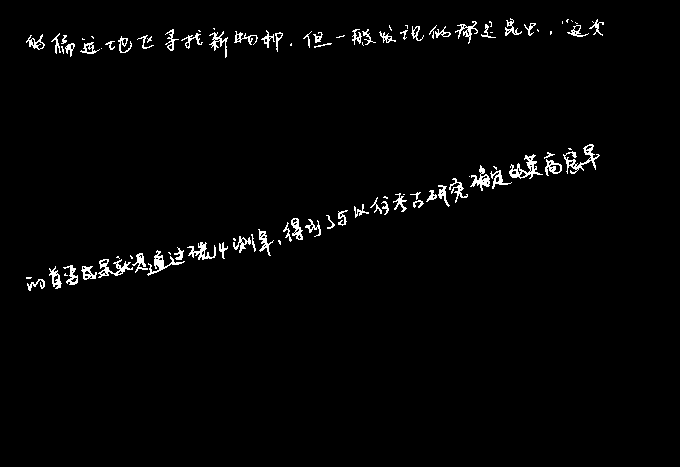 的偏远地区寻找新物种.但一般发现的都是昆虫,“这次
的首要成果就是通过碳14测年,得到了与以往考古研究确定的莫高窟早